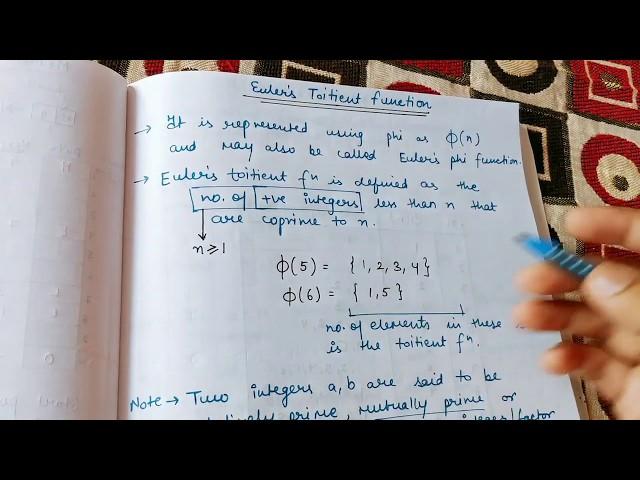 Euler's Toitient function
→ It is represented using phi as ϕ(n)
and may also be called Euler's phi function.
→ Euler's toitient fⁿ is defined as the
no. of +ve integers less than n that
are coprime to n.
n≥1
ϕ(5) = {1,2,3,4}
ϕ(6) = {1,5}
no. of elements in these
is the toitient fⁿ.
Note → Two integers a,b are said to be
prime, mutually prime or